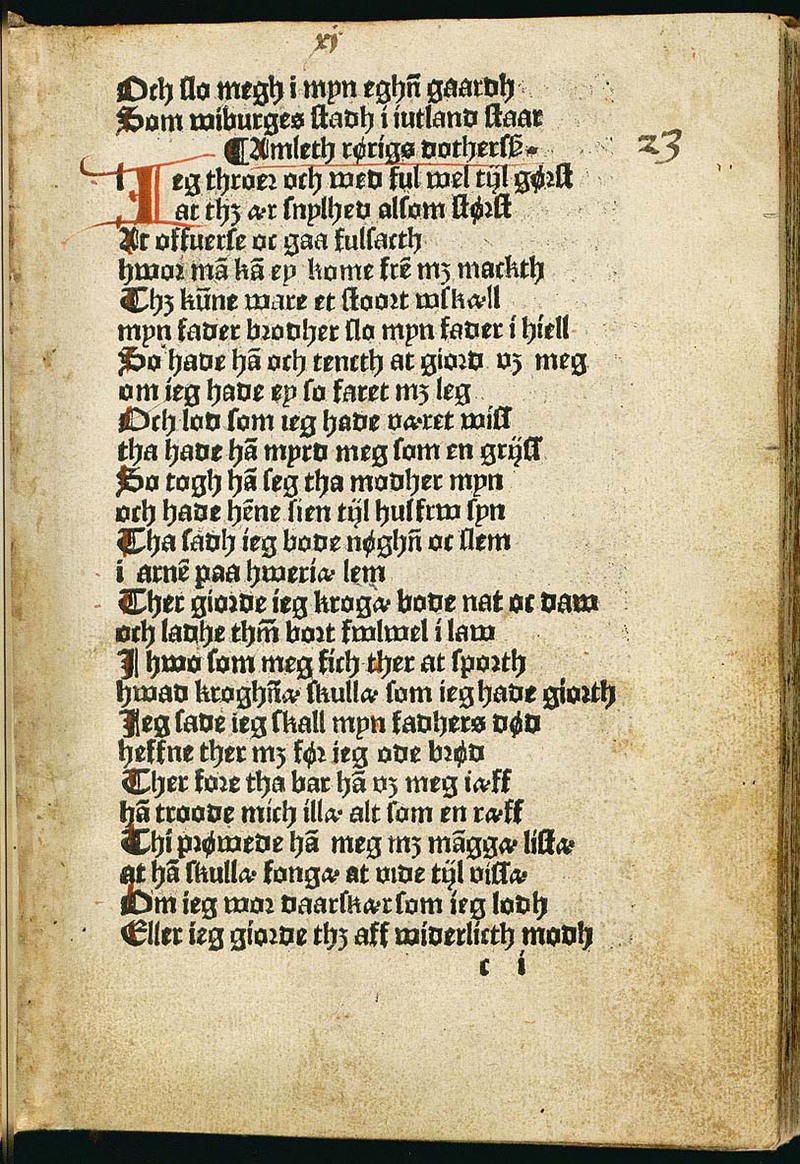 xj
Och slo megh i myn eghn̄ gaardh
Som wiburges stadh i iutland staar
¶Amleth rørigs dothersē
23
i Ieg throer och wed ful wel tijl gørst
at thꝫ ær snylhed alsom størst
At offuerse oc gaa fulsacth
hwor mā kā ey kome frē mꝫ mackth
Thꝫ kūne ware et stoort wskæll
myn fader brodher slo myn fader i hiell
So hade hā och tencth at giord vꝫ meg
om ieg hade ey so faret mꝫ leg
Och lod som ieg hade været wiss
tha hade hā myrd meg som en grijss
So togh hā seg tha modher myn
och hade hēne sien tijl husfrw syn
Tha sadh ieg bode nøghn̄ oc slem
i arnē paa hweriæ lem
Ther giorde ieg krogæ bode nat oc daw
och ladhe thm̄ bort fwlwel i law
I hwo som meg fich ther at sporth
hwad kroghn̄æ skullæ som ieg hade giorth
Ieg sade ieg skall myn fadhers død
heffne ther mꝫ før ieg ode brød
Ther fore tha bar hā vꝫ meg iæff
hā troode mich illæ alt som en ræff
Thi prøwede hā meg mꝫ māggæ listæ
at hā skullæ fongæ at vide tijl vissæ
Om ieg wor daarskær som ieg lodh
Eller ieg giorde thꝫ aff widerlicth modh
c i